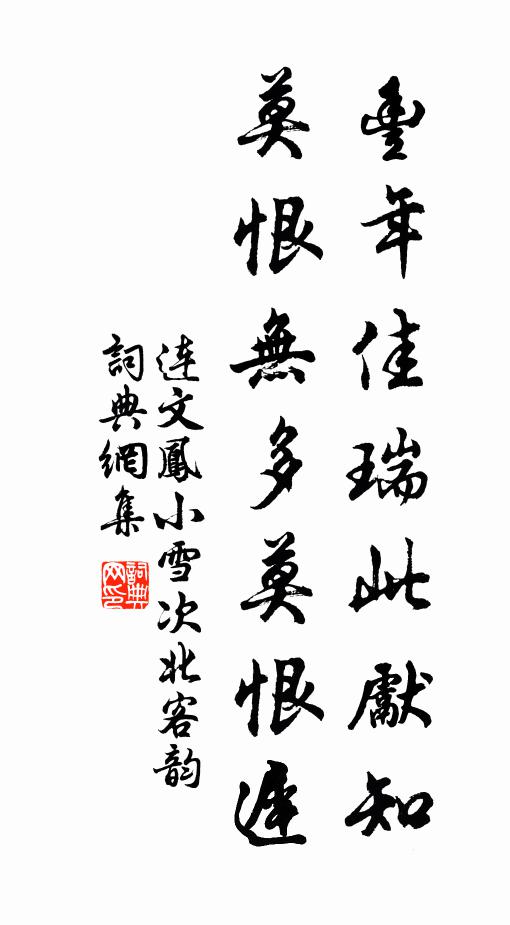 豐年佳瑞此獻知
莫恨無多莫恨遲
連文鳳小雪次北客韵
詞典網集
詞典网印